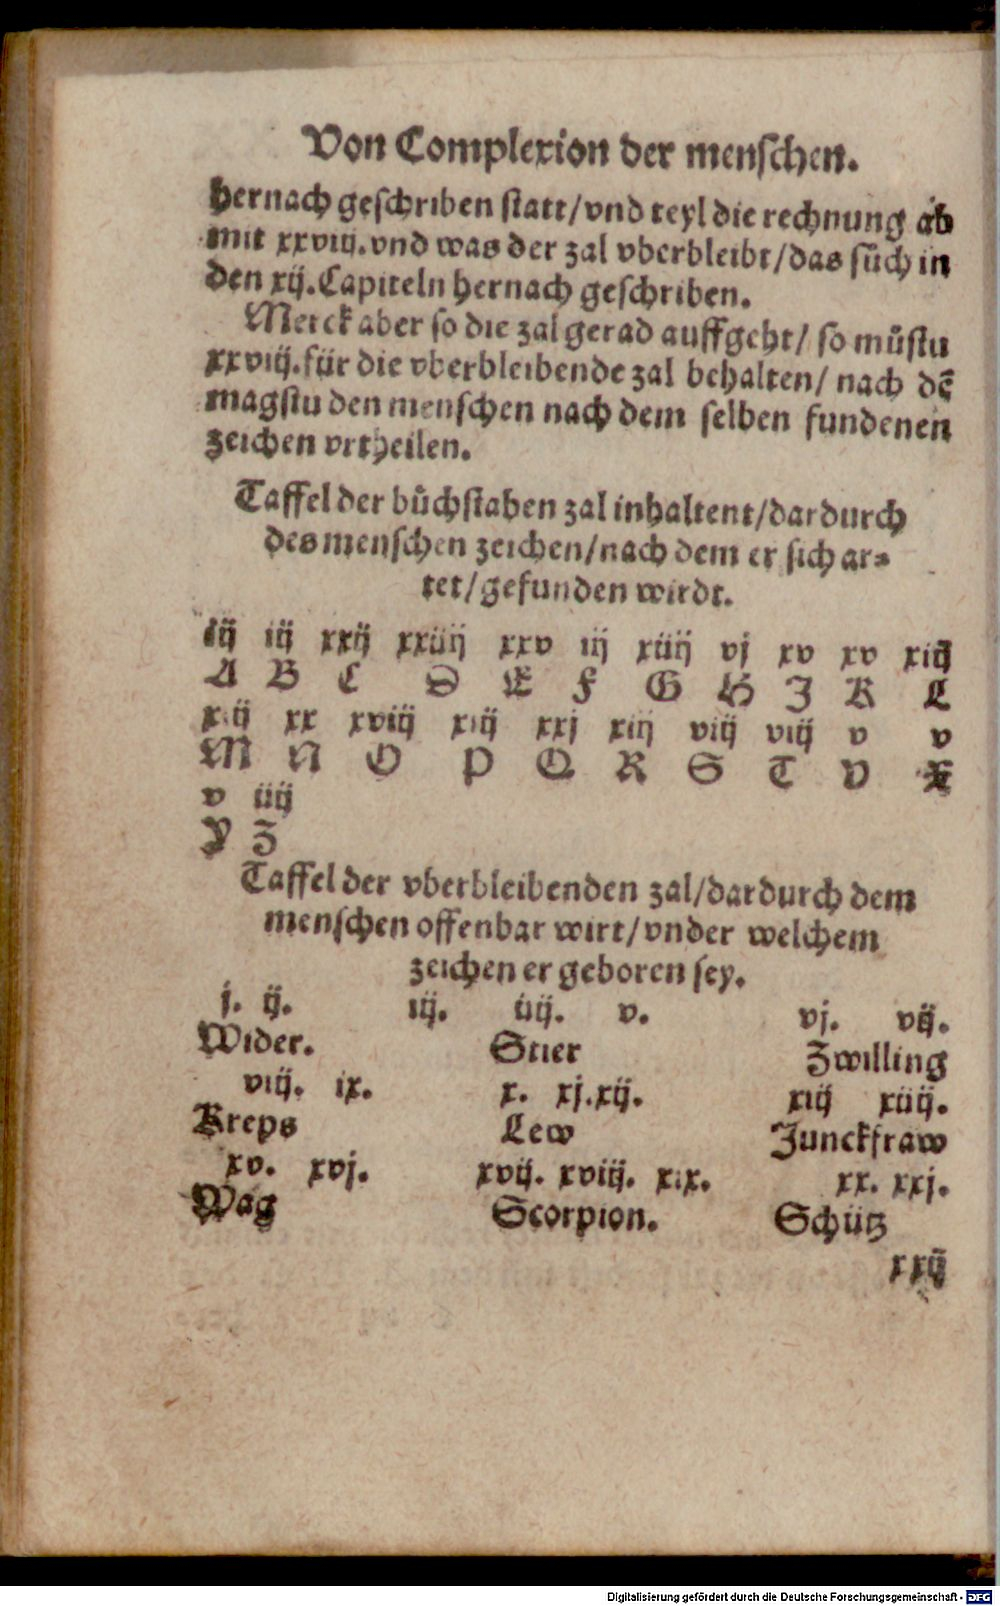 Von Complexion der menschen.
hernach geschriben statt/vnd teyl die rechnung ab
mit xxviij.vnd was der zal vberbleibt/das sůch in
den xij.Capiteln hernach geschriben.
Merck aber so die zal gerad auffgeht/ so můstu
xxviij.für die vberbleibende zal behalten/ nach dē
magstu den menschen nach dem selben fundenen
zeichen vrtheilen.
Taffel der bůchstaben zal inhaltent/dardurch
des menschen zeichen/nach dem er sich ar⸗
tet/gefunden wirdt.
iij iij xxij xxiiij xxv iij xiiij vj xv xv xiij
A B C D E F G H J K L
xiij xx xviij xiij xxj xiij viij viij v v
M N O P Q R S T V X
v iiij
Y Z
Taffel der vberbleibenden zal/dardurch dem
menschen offenbar wirt/vnder welchem
zeichen er geboren sey.
j. ij. iij. iiij. v. vj. vij.
Wider. Stier Zwilling
viij. ix. x. xj.xij. xiij xiiij.
Kreps Lew Junckfraw
xv. xvj. xvij. xviij. xix. xx. xxj.
Wag Scorpion. Schütz
xxij
Digitalisierung gefördert durch die Deutsche Forschungsgemeinschaft - DFG